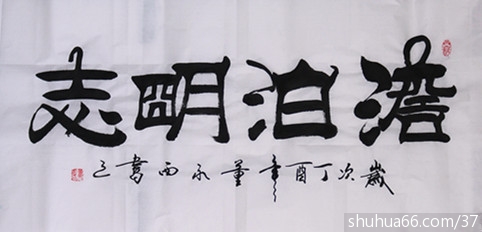 澹泊明志
歲次丁酉年董永西書之
shuhua66.com/37